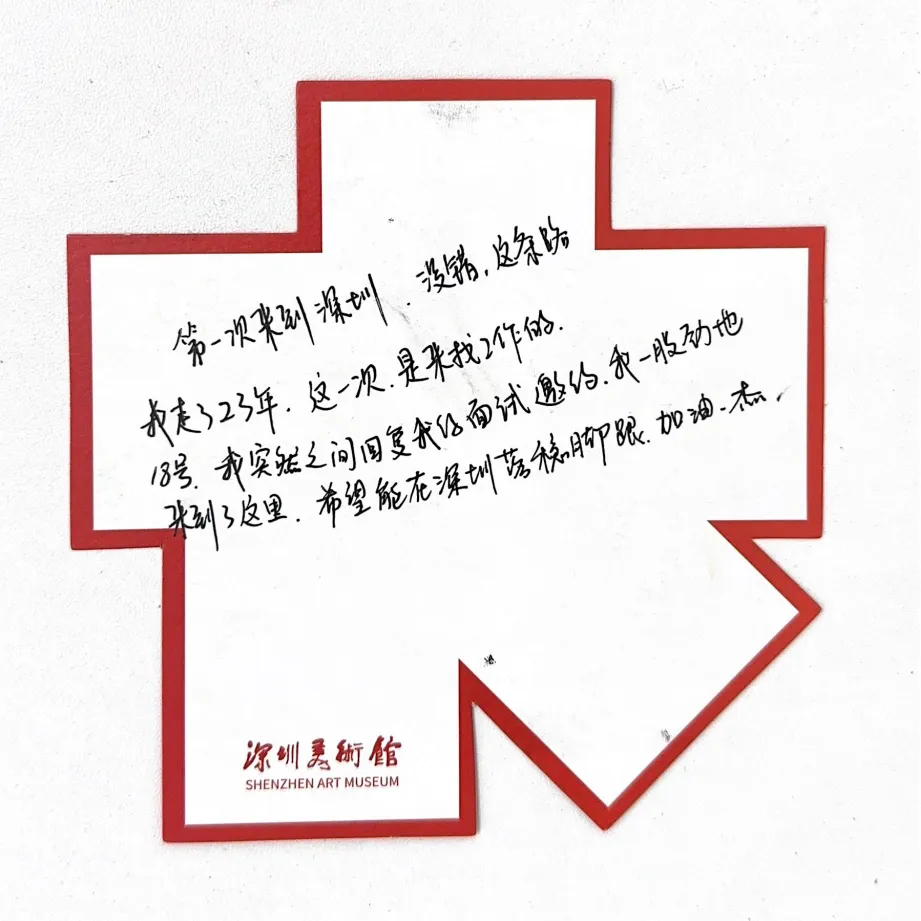 第一次来到深圳，没错，这条路
我走了23年，这一次，是来找工作的.
18号，我突然之间回复我的面试邀约，我一股劲地
来到了这里，希望能在深圳落稳脚跟，加油，杰.
深圳美術館
SHENZHEN ART MUSEUM